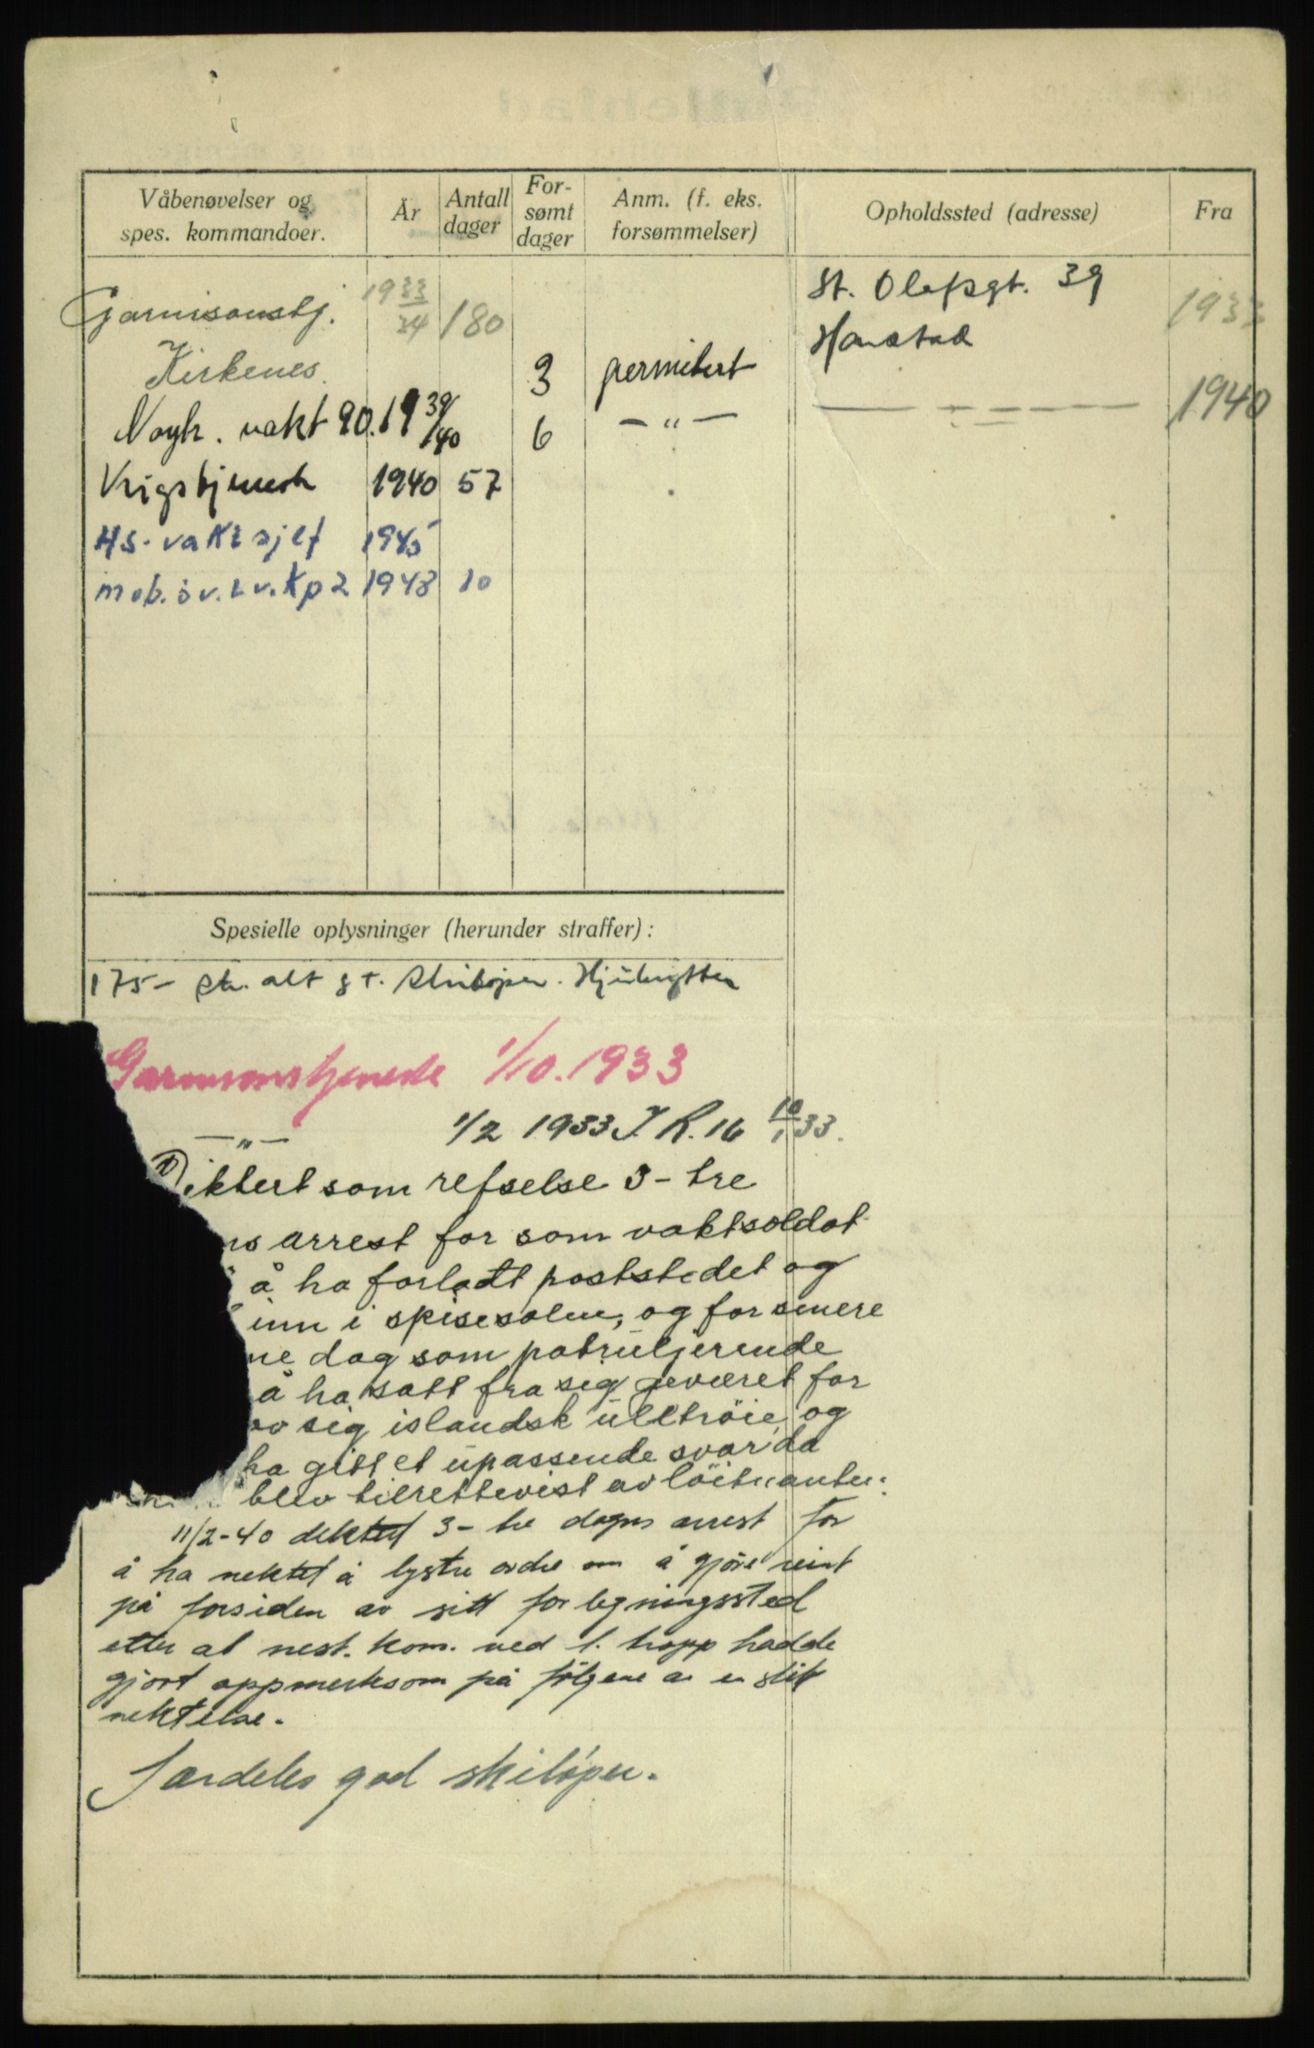 Våbenøvelser og spes. kommandoer.
År
Antall dager
For- sømt dager
Anm. (f. eks. forsømmelser)
Opholdssted (adresse)
Fra
Garnisonstj. 1933/34 180 St. Olafsgt. 39 1933
Kirkenes. 3 permitert Harstad
Nøytr. vakt 90. 1939/40 6 — " — — " — 1940
Krigstjenest 1940 57
HS-vaktsjef 1945
mob.øv. Lv.Kp2 1948 10
Spesielle oplysninger (herunder straffer):
175 - alt g t. Skiløper.
Garnisonstjeneste 1/10.1933
— " — 1/2 1933 I.R.16 10/1 33.
1) iktert som refselse 3 - tre
ns arrest for som vaktsoldat
å ha forladt poststedet og
inn i spisesalen, og for senere
ne dag som patruljerende
å ha satt fra seg geværet for
av sig islandsk ulltrøie, og
ha gitt et upassende svar da
blev tilrettevist av løitnanten.
11/2-40 diktert 3 - tre dagers arrest for
å ha nektet å lystre ordre om å gjøre reint
på forsiden av sitt forlegningssted
etter at nest. kom. ved 1. tropp hadde
gjort oppmerksom på følgene av en slik
nektelse.
Særdeles god skiløper.